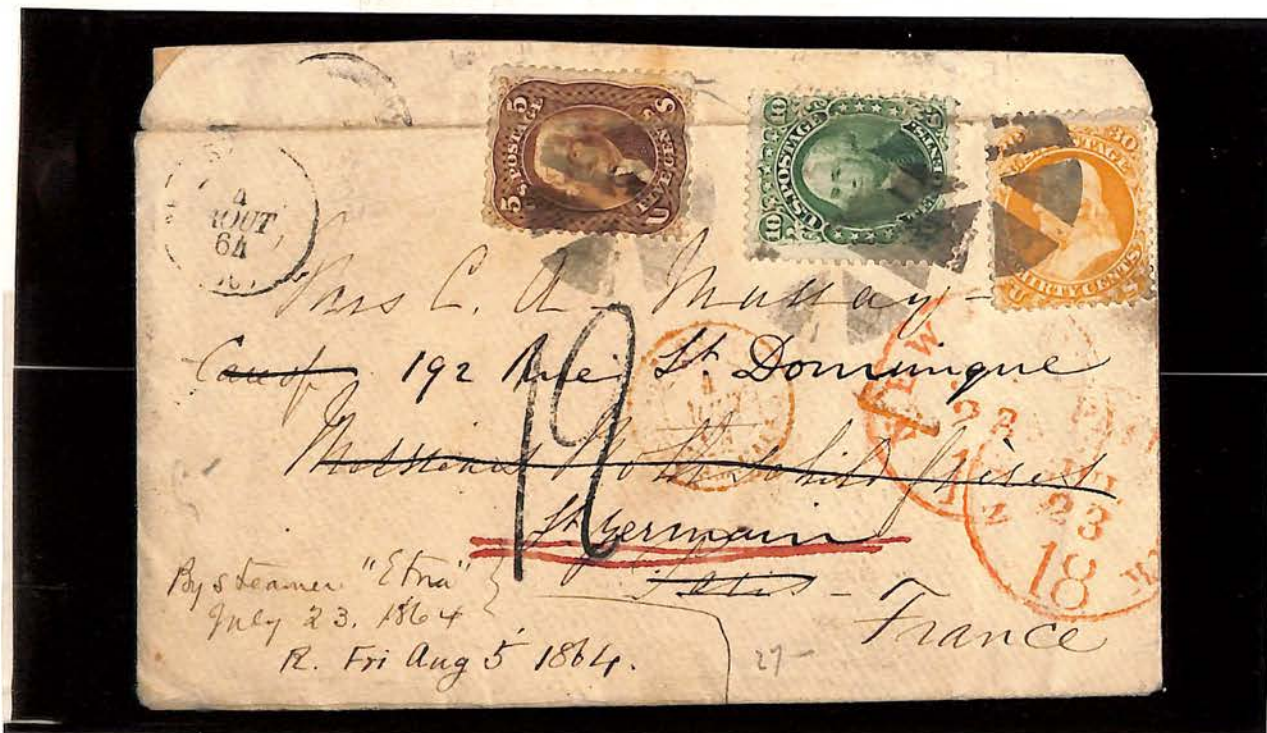 5 U.S. POSTAGE 5
FIVE CENTS
U S
10 U.S. POSTAGE 10
TEN CENTS
U S
30 POSTAGE
THIRTY CENTS
U S
4
AOUT
64
Mrs C. A. Murray
Care of 192 Rue St. Dominique
Messieurs Rothschild frères
St Germain
Paris - France
12
4
NEW
23
18
By steamer "Etna"
July 23. 1864
R. Fri Aug 5 1864.
27-